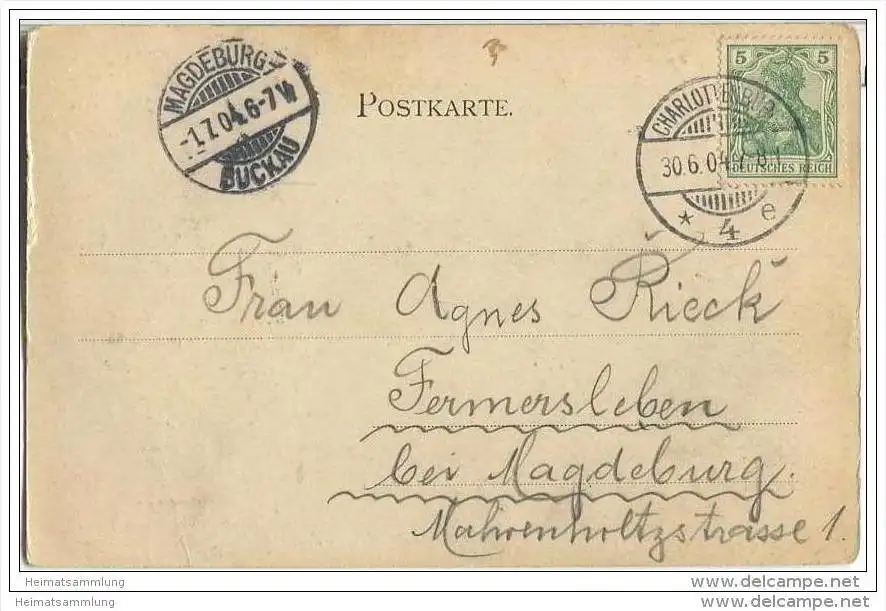 MAGDEBURG-
-1.7.04.6-7½
BUCKAU
POSTKARTE.
CHARLOTTENBURG
30.6.04.
* 4 e
5 5
DEUTSCHES REICH
Frau Agnes Rieck
Fermersleben
bei Magdeburg.
Mahrenholtzstrasse 1.
Heimatsammlung www.delcampe.net
Heimatsammlung www.delcampe.net